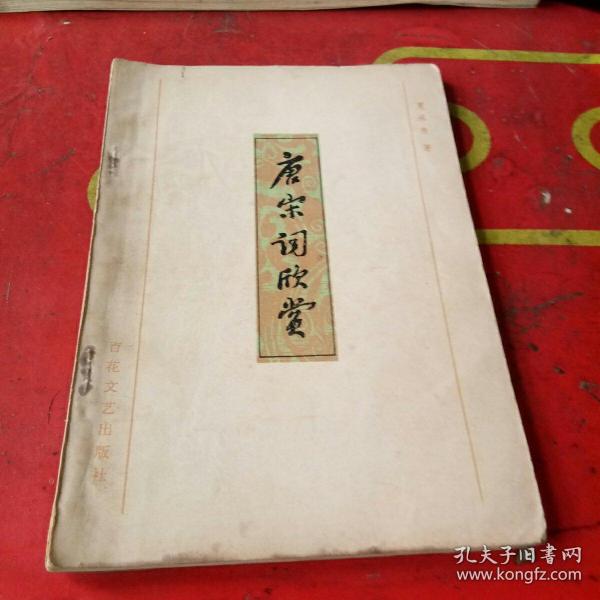 夏承焘 著
唐宋词欣赏
百花文艺出版社
孔夫子旧书网
www.kongfz.com